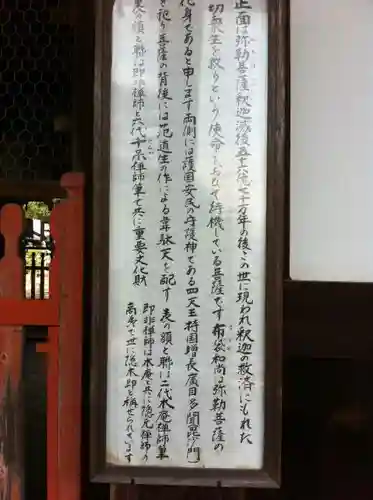 正面は弥勒菩薩釈迦滅後五十六億七千万年の後この世に現われ釈迦の救済にもれた
切衆生を救うという使命をおびて待機している菩薩です布袋和尚は弥勒菩薩の
化身であると申します両側には護国安民の守護神である四天王持国増長広目多聞(毘沙門)
を祀り菩薩の背後には范道生の作による韋駄天を配す 表の額と聯は二代木庵禅師筆
裏の額と聯は即非禅師と六代千呆禅師筆で共に重要文化財
即非禅師は木庵と共に隠元禅師の
高弟で世に隠木即と称せられています